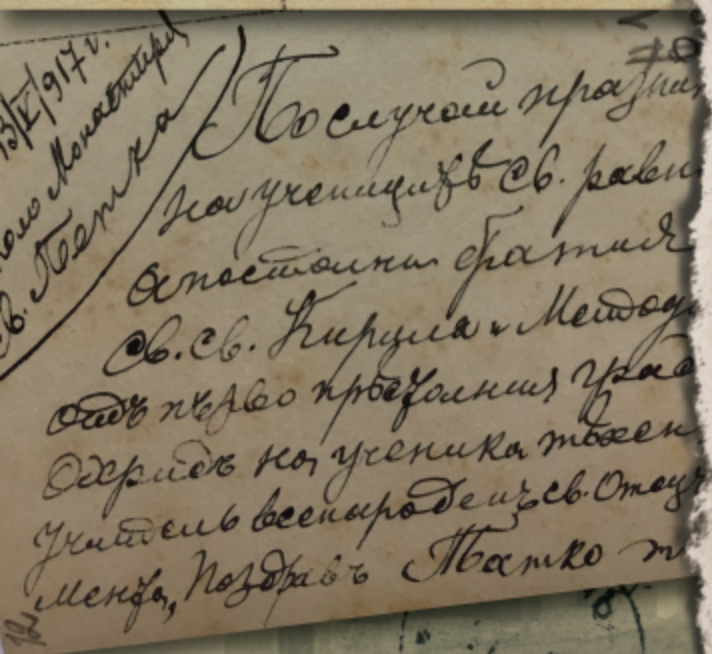 13/V/917 г.
около Монастиръ
св. Петка
По случай празни
на учениците Св. равн
апостолни братия
Св. Св. Кирила и Методи
отъ първо престолния град
Охридъ на ученика тѣхен
учитель всенароденъ св. Отецъ
Поздравъ Татко